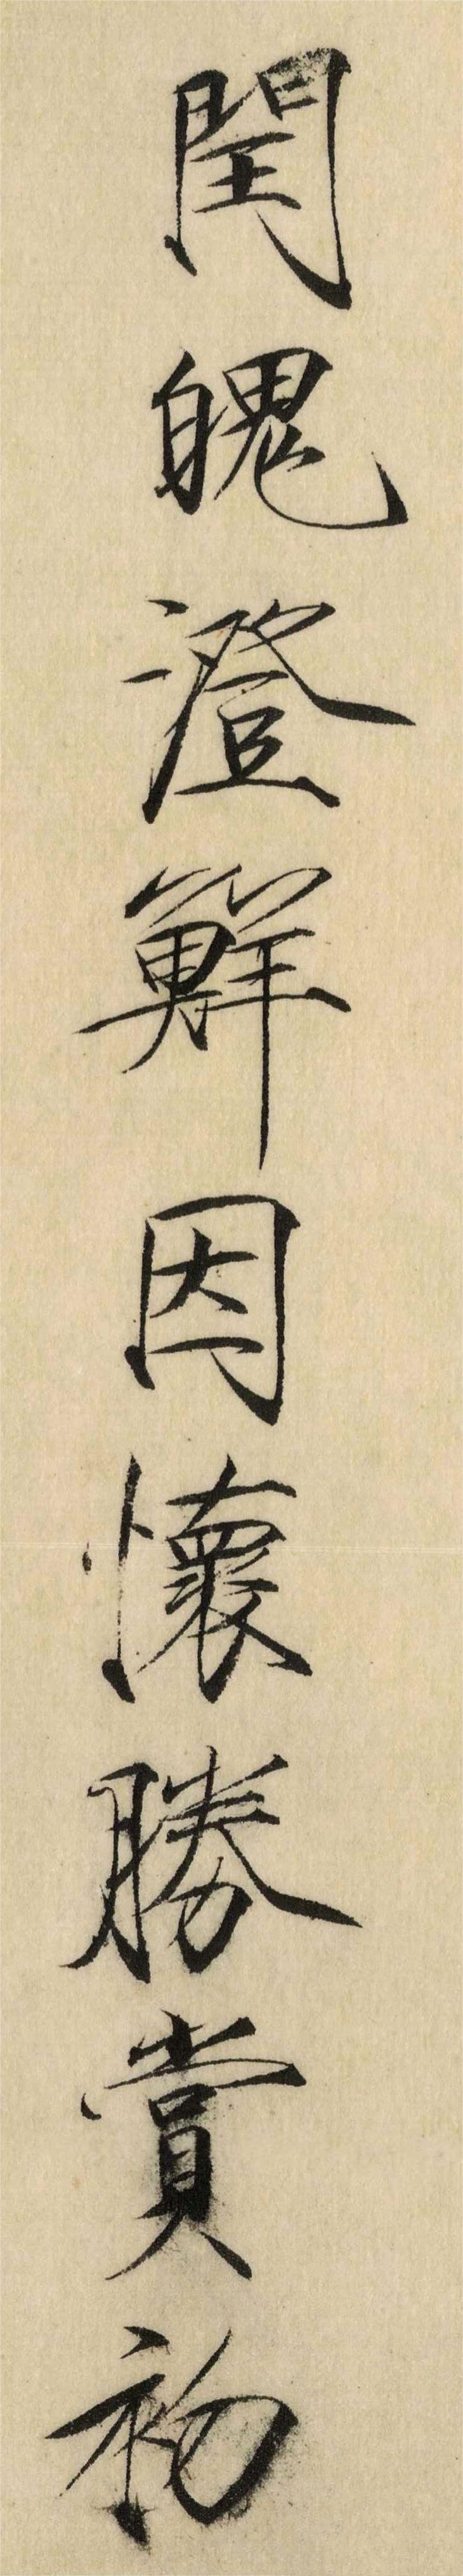 閏魄澄鮮因懷勝賞初